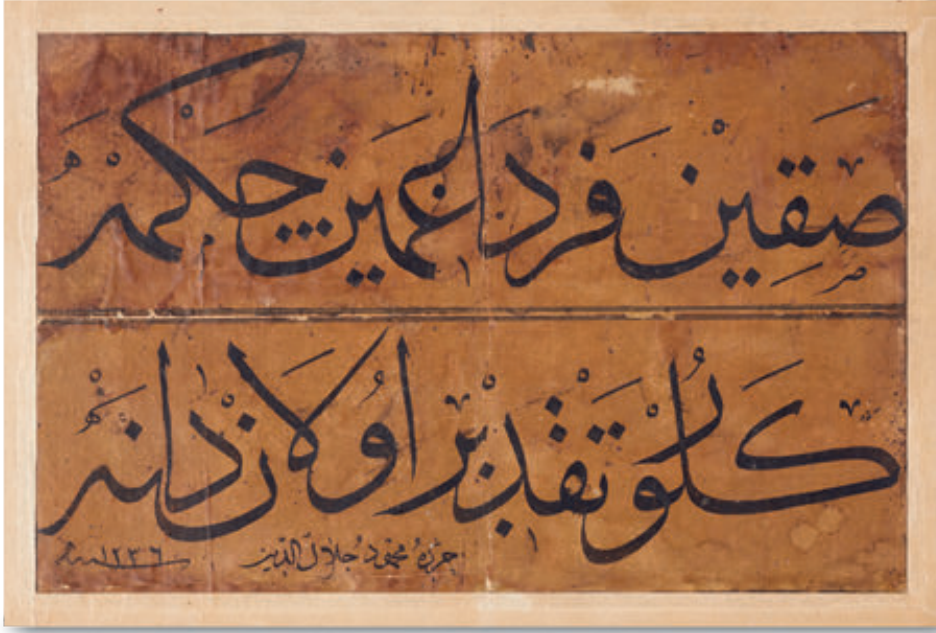 صقين فردا غمين چكمه
كلور تقدير اولان دانه
حرره محمود جلال الدين سنه ١٢٣٦